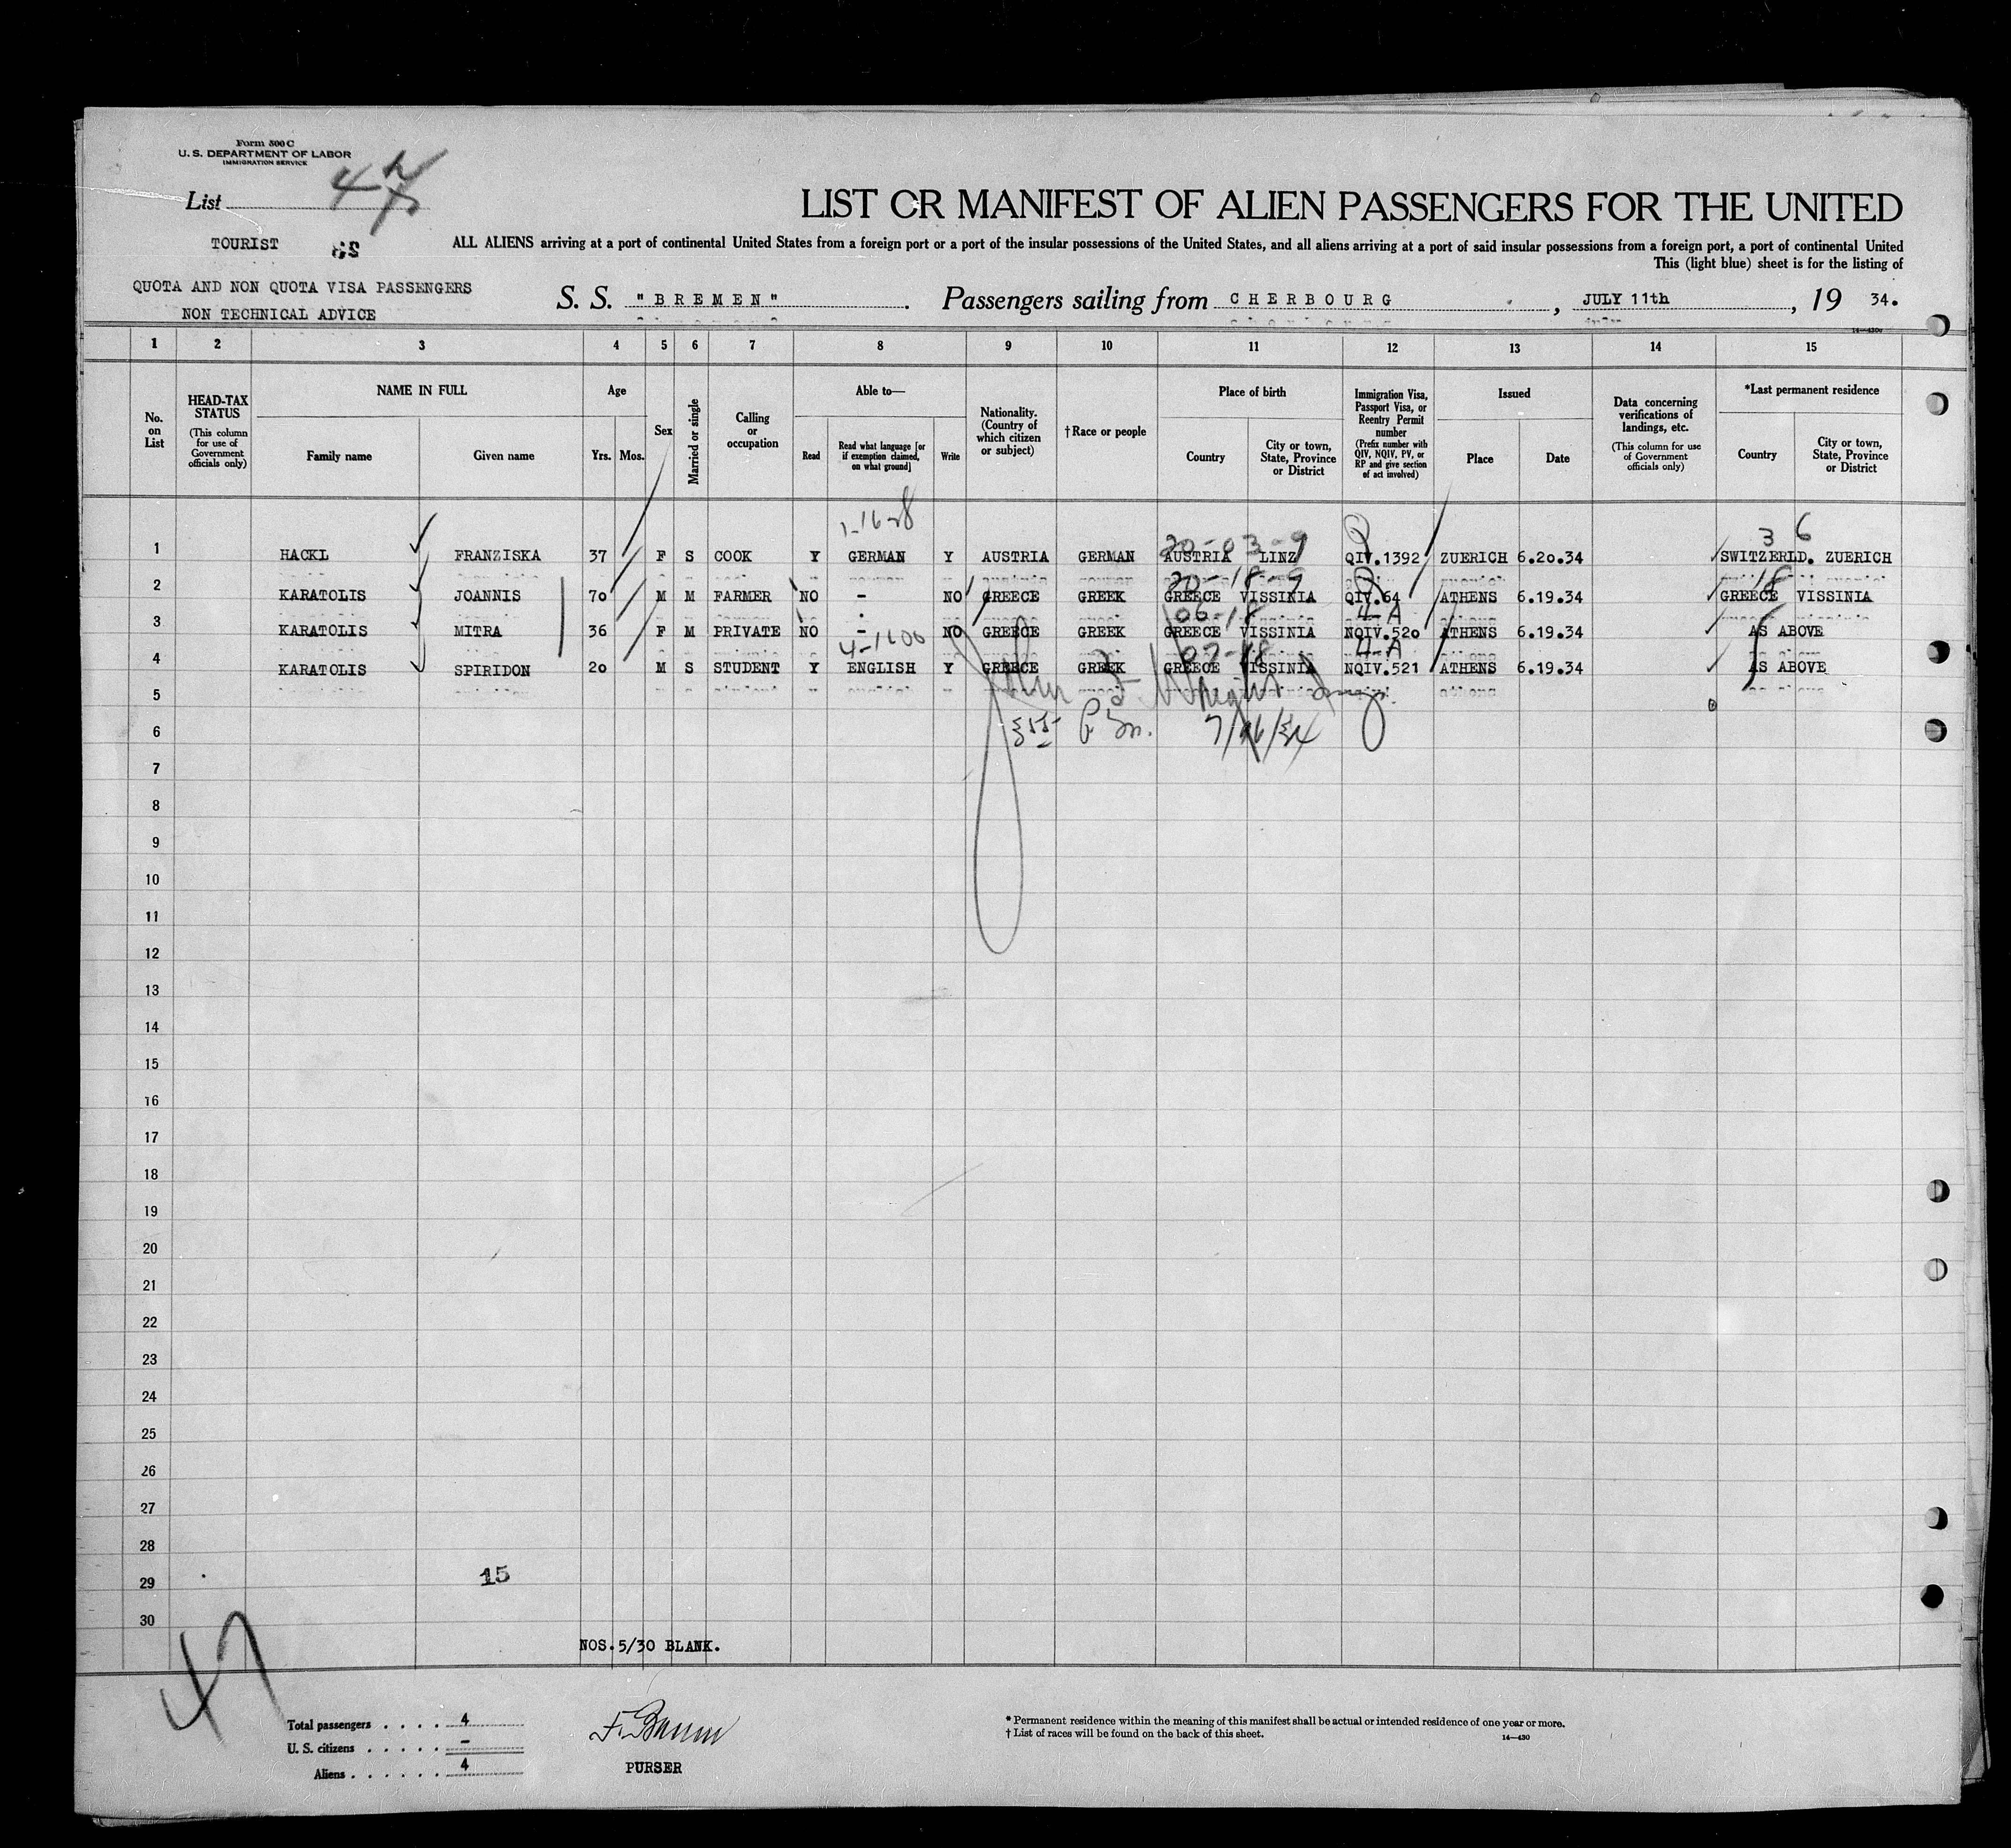 Form 500 C
U. S. DEPARTMENT OF LABOR
IMMIGRATION SERVICE
List 47
LIST OR MANIFEST OF ALIEN PASSENGERS FOR THE UNITED
TOURIST
ALL ALIENS arriving at a port of continental United States from a foreign port or a port of the insular possessions of the United States, and all aliens arriving at a port of said insular possessions from a foreign port, a port of continental United
This (light blue) sheet is for the listing of
QUOTA AND NON QUOTA VISA PASSENGERS
NON TECHNICAL ADVICE
S. S. "BREMEN" . Passengers sailing from CHERBOURG , JULY 11th , 19 34.
1 2 3 4 5 6 7 8 9 10 11 12 13 14 15
No. on List
HEAD-TAX STATUS (This column for use of Government officials only)
NAME IN FULL
Family name Given name
Age
Yrs. Mos.
Sex
Married or single
Calling or occupation
Able to—
Read Read what language [or if exemption claimed, on what ground] Write
Nationality. (Country of which citizen or subject)
†Race or people
Place of birth
Country City or town, State, Province or District
Immigration Visa, Passport Visa, or Reentry Permit number (Prefix number with QIV, NQIV, PV, or RP and give section of act involved)
Issued
Place Date
Data concerning verifications of landings, etc. (This column for use of Government officials only)
*Last permanent residence
Country City or town, State, Province or District
1-16-28 20-03-9 Q 3 6
1 HACKL FRANZISKA 37 F S COOK Y GERMAN Y AUSTRIA GERMAN AUSTRIA LINZ QIV.1392 ZUERICH 6.20.34 SWITZERLD. ZUERICH
20-18-9 Q 18
2 KARATOLIS JOANNIS 70 M M FARMER NO - NO GREECE GREEK GREECE VISSINIA QIV.64 ATHENS 6.19.34 GREECE VISSINIA
06-18 4-A
3 KARATOLIS MITRA 36 F M PRIVATE NO - NO GREECE GREEK GREECE VISSINIA NQIV.520 ATHENS 6.19.34 AS ABOVE
4-1600 07-18 4-A
4 KARATOLIS SPIRIDON 20 M S STUDENT Y ENGLISH Y GREECE GREEK GREECE VISSINIA NQIV.521 ATHENS 6.19.34 AS ABOVE
5
6 7/16/34
7
8
9
10
11
12
13
14
15
16
17
18
19
20
21
22
23
24
25
26
27
28
29 15
30
NOS.5/30 BLANK.
47
Total passengers . . . . 4
U. S. citizens . . . . . -
Aliens . . . . . . 4
PURSER
* Permanent residence within the meaning of this manifest shall be actual or intended residence of one year or more.
† List of races will be found on the back of this sheet.
14—430